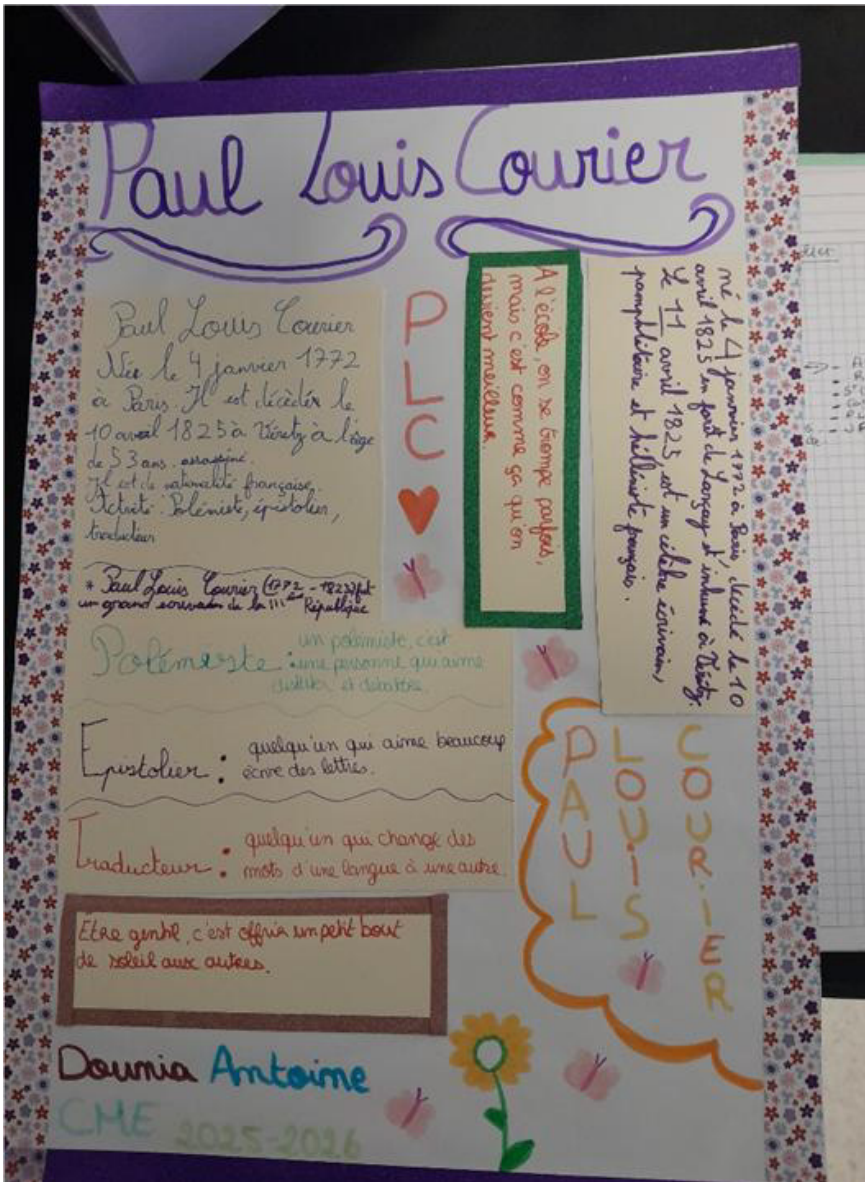 Paul Louis Courier
Paul Louis Courier
Née le 4 janvier 1772
à Paris. Il est décédér le
10 avril 1825 à Véretz à l'âge
de 53 ans. assassiné.
Il est de nationalité française,
Activité : Polémiste, épistolier,
traducteur
* Paul Louis Courier (1772 - 1825) fut
un grand écrivain de la IIIème
République
PLC
A l'école, on se trompe parfois,
mais c'est comme ça qu'on
devient meilleur.
né le 4 janvier 1772 à Paris, décédé le 10
avril 1825 en forêt de Larçay et inhumé à Véretz.
Le 11 avril 1825, est un célèbre écrivain,
pamphlétaire et helléniste français.
Polémiste : un polémiste, c'est
une personne qui aime
et débattre.
Epistolier : quelqu'un qui aime beaucoup
écrire des lettres.
Traducteur : quelqu'un qui change des
mots d'une langue à une autre.
PAUL
LOUIS
COURIER
Etre gentil, c'est offrir un petit bout
de soleil aux autres.
Dounia Antoine
CME 2025-2026